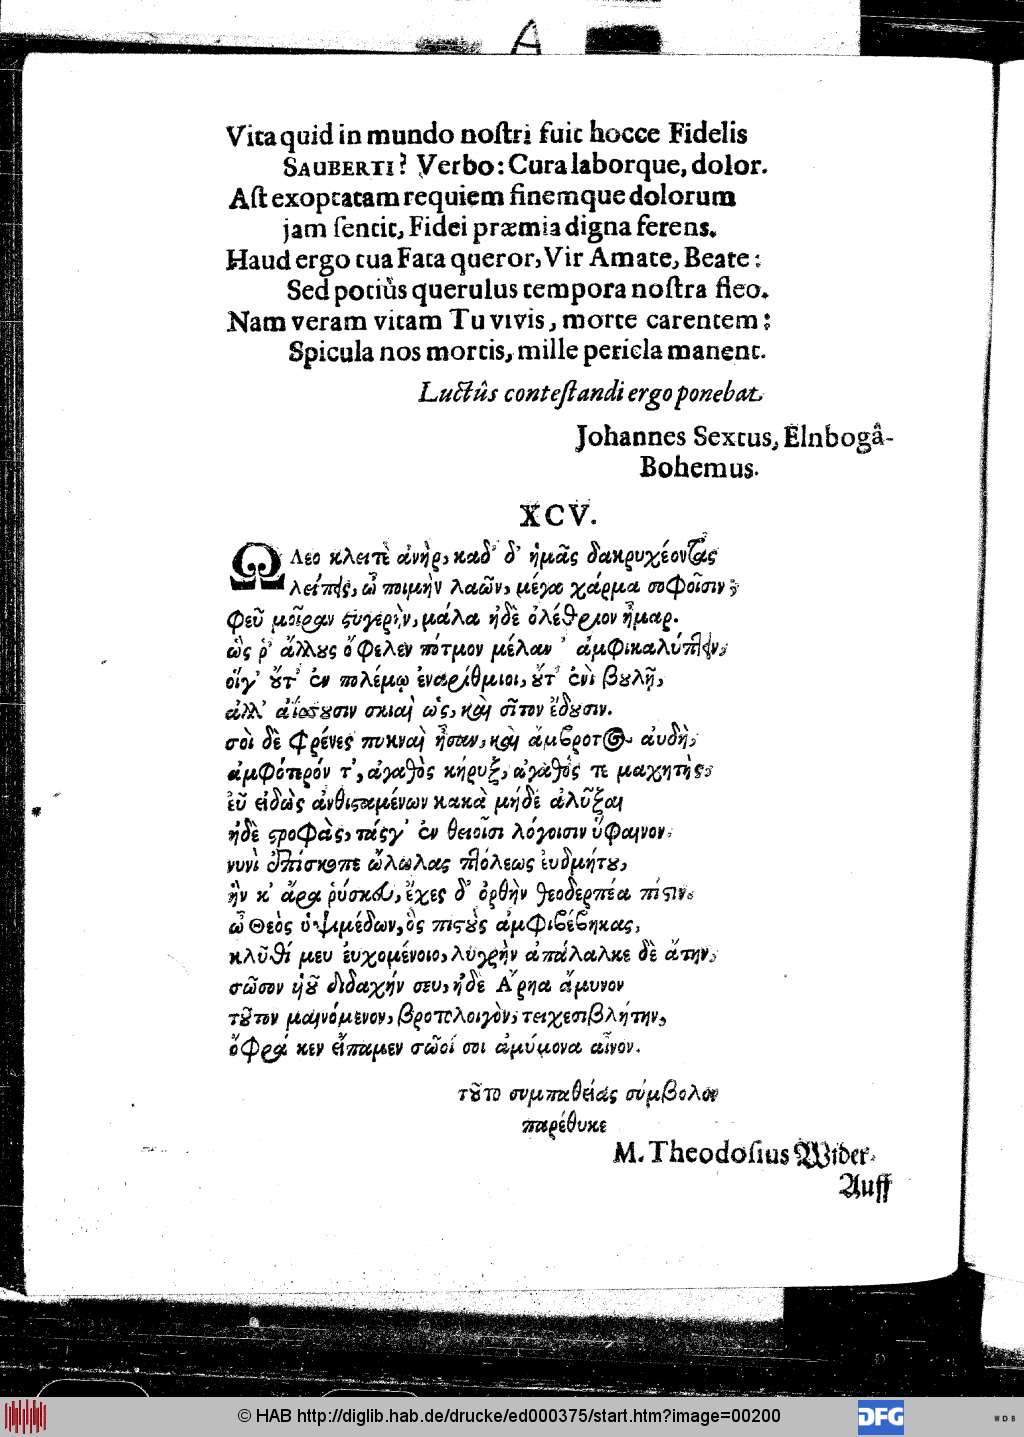 A
Vita quid in mundo noſtri fuit hocce Fidelis
SAUBERTI? Verbo: Cura laborque, dolor.
Aſt exoptatam requiem finemque dolorum
jam ſentit, Fidei præmia digna ferens.
Haud ergo tua Fata queror, Vir Amate, Beate:
Sed potiùs querulus tempora noſtra fleo.
Nam veram vitam Tu vivis, morte carentem:
Spicula nos mortis, mille pericla manent.
Luctûs conteſtandi ergo ponebat
Johannes Sextus, Elnbogâ-
Bohemus.
XCV.
Ωλεο κλειτὲ ἀνὴρ, καδ' δ' ἡμᾶς δακρυχέοντας
λείπεις, ὦ ποιμὴν λαῶν, μέγα χάρμα σοφοῖσιν;
φεῦ μοῖραν ςυγερὴν, μάλα ἠδὲ ὀλέθριον ἦμαρ.
ὥς ῥ' ἄλλους ὄφελεν πότμον μέλαν' ἀμφικαλύπτειν,
οἵγ' οὔτ' ἐν πολέμῳ ἐναρίθμιοι, οὔτ' ἐνὶ βουλῇ,
ἀλλ' ἀίσσουσιν σκιαὶ ὡς, καὶ σῖτον ἔδουσιν.
σοὶ δὲ φρένες πυκναὶ ἦσαν, καὶ ἄμβροτος αὐδὴ,
ἀμφότερόν τ', ἀγαθὸς κήρυξ, ἀγαθός τε μαχητὴς;
εὖ εἰδὼς ἀνθιςαμένων κακὰ μήδε ἀλῦξαι
ἠδὲ ςροφὰς, τάςγ' ἐν θειοῖσι λόγοισιν ὕφαινον.
νυνὶ ἐπίσκοπε ὤλωλας πτόλεως ἐυδμήτου,
ἣν κ' ἄρα ῥύσκευ, ἔχες δ' ὀρθὴν θεοδερπέα πίςιν.
ὦ Θεὸς ὑψιμέδων, ὃς πιςοὺς ἀμφιβέβηκας,
κλῦθί μευ ἐυχομένοιο, λυγρὴν ἀπάλαλκε δὲ ἄτην,
σῶσον ὑοῦ διδαχήν σευ, ἠδὲ Ἄρηα ἄμυνον
τοῦτον μαινόμενον, βροτολοιγὸν, τειχεσιβλήτην,
ὄφρά κεν εἴπαμεν σῶοί σοι ἀμύμονα αἶνον.
τοῦτο συμπαθείας σύμβολον
παρέθυκε
M. Theodoſius Wider.
Auff
© HAB http://diglib.hab.de/drucke/ed000375/start.htm?image=00200
DFG
WDB